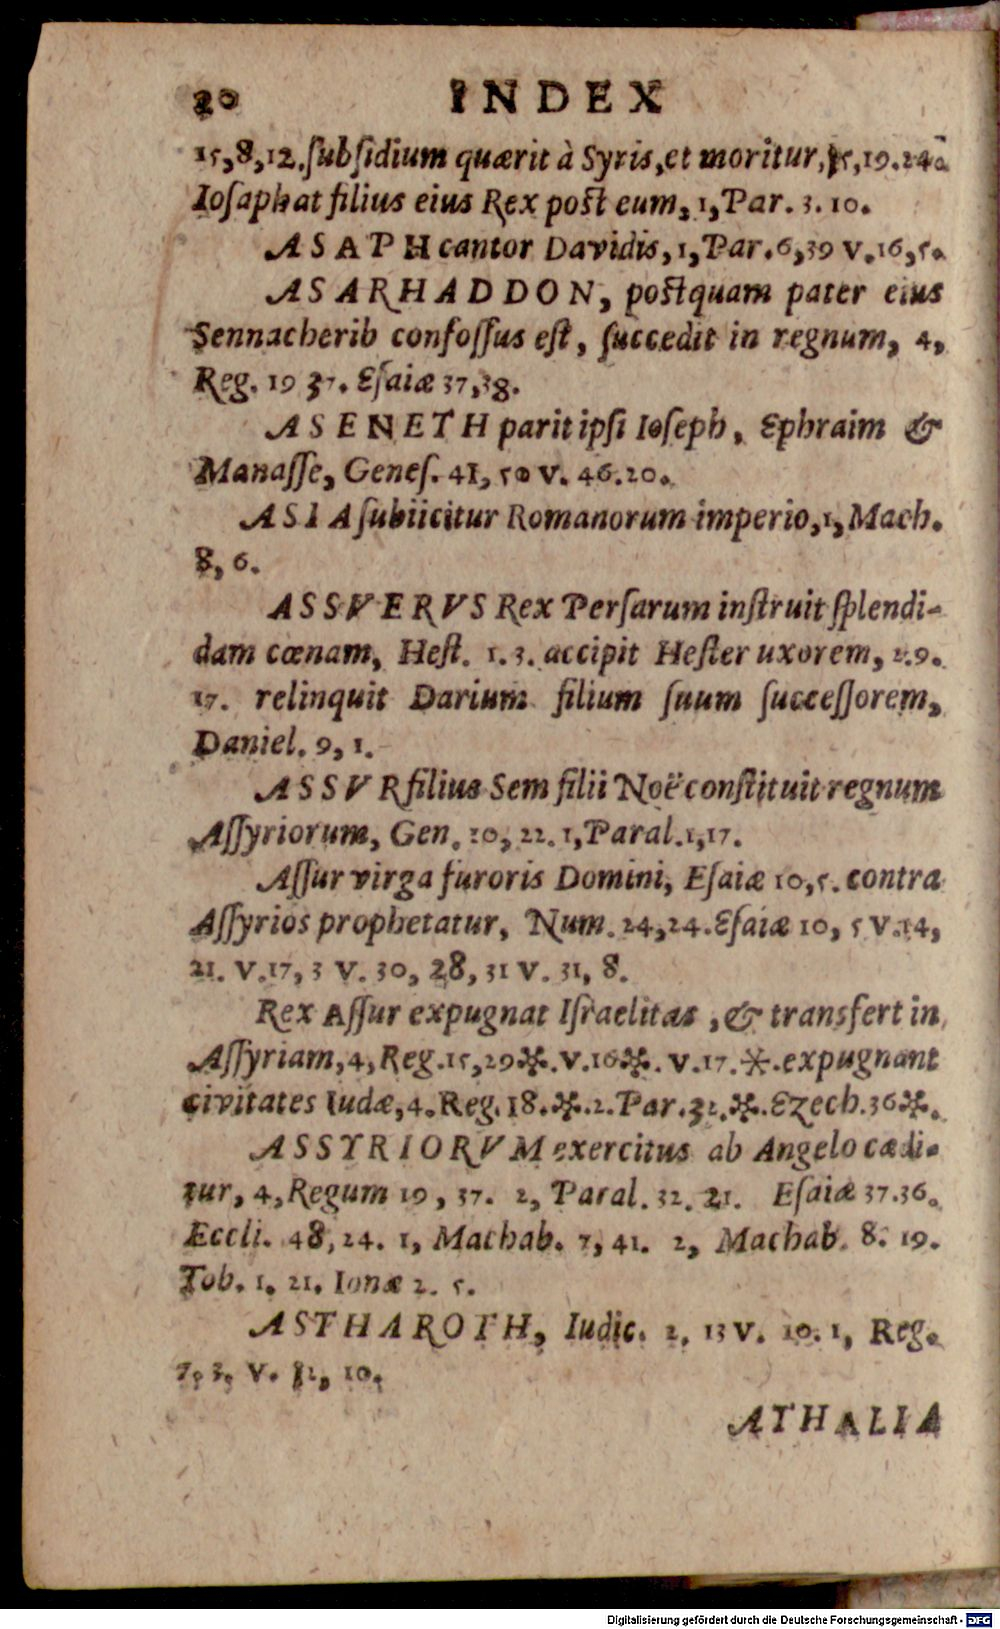 20 INDEX
15,8,12. ſubſidium quærit à Syris, et moritur, 15,19.24.
Ioſaphat filius eius Rex poſt eum, 1, Par. 3. 10.
ASAPH cantor Davidis, 1, Par. 6,39 v. 16,5.
ASARHADDON, poſtquam pater eius
Sennacherib confoſſus eſt, ſuccedit in regnum, 4,
Reg. 19 37. Eſaiæ 37,38.
ASENETH parit ipſi Ioſeph, Ephraim &
Manaſſe, Geneſ. 41, 50 v. 46.20.
ASIA ſubiicitur Romanorum imperio, 1, Mach.
8, 6.
ASSVERVS Rex Perſarum inſtruit ſplendi-
dam cœnam, Heſt. 1. 3. accipit Heſter uxorem, 2.9.
17. relinquit Darium filium ſuum ſucceſſorem,
Daniel. 9, 1.
ASSVR filius Sem filii Noë conſtituit regnum
Aſſyriorum, Gen. 10, 22. 1, Paral. 1,17.
Aſſur virga furoris Domini, Eſaiæ 10,5. contra
Aſſyrios prophetatur, Num. 24,24. Eſaiæ 10, 5 v. 14,
21. v. 17, 3 v. 30, 28, 31 v. 31, 8.
Rex Aſſur expugnat Iſraelitas, & transfert in
Aſſyriam, 4, Reg. 15, 29✻. v. 16✻. v. 17.✻. expugnant
civitates Iudæ, 4. Reg. 18.✻. 2. Par. 32.✻. Ezech. 36✻.
ASSYRIORVM exercitus ab Angelo cædi-
tur, 4, Regum 19, 37. 2, Paral. 32. 21. Eſaiæ 37.36.
Eccli. 48, 24. 1, Machab. 7, 41. 2, Machab. 8. 19.
Tob. 1. 21. Ionæ 2. 5.
ASTHAROTH, Iudic. 2. 13 v. 10. 1, Reg.
7. 3. v. 12, 10.
ATHALIA
Digitalisierung gefördert durch die Deutsche Forschungsgemeinschaft - DFG